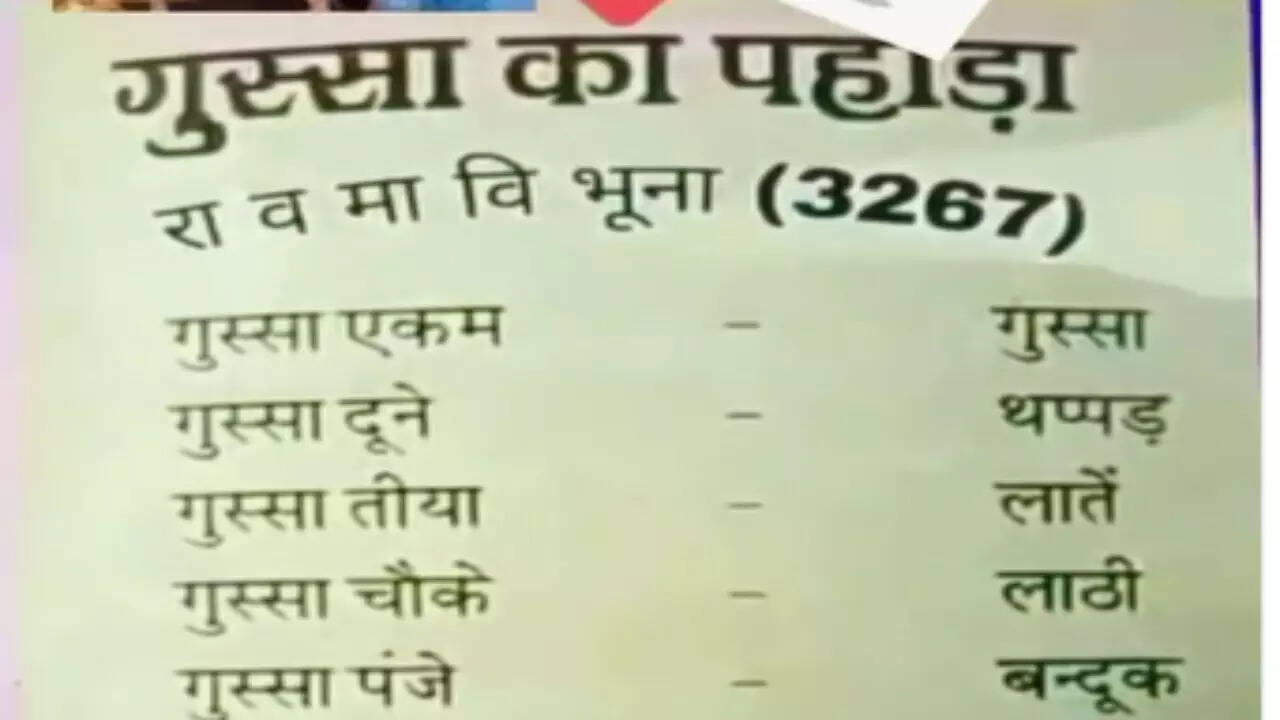 गुस्सा का पहाड़ा
रा व मा वि भूना (3267)
गुस्सा एकम - गुस्सा
गुस्सा दूने - थप्पड़
गुस्सा तीया - लातें
गुस्सा चौके - लाठी
गुस्सा पंजे - बन्दूक